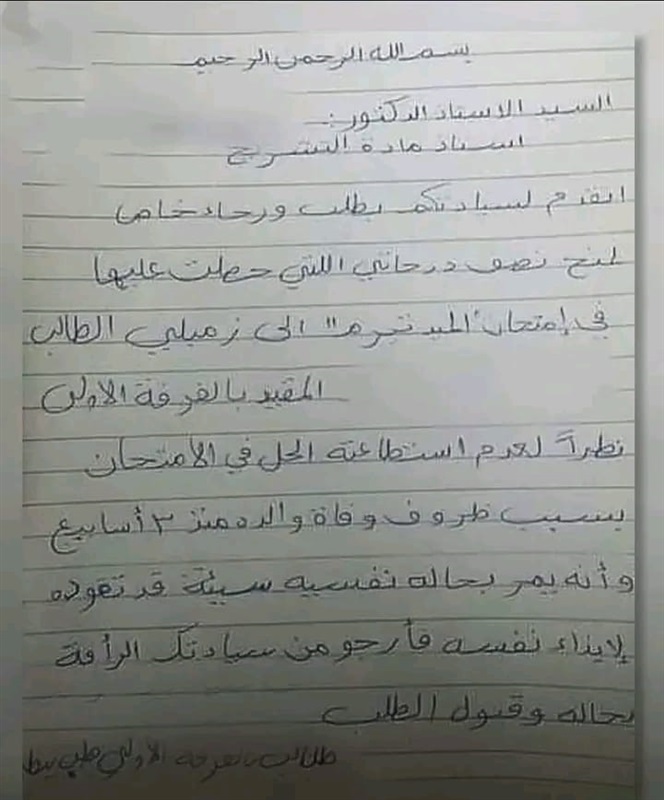 بسم الله الرحمن الرحيم
السيد الاستاذ الدكتور:
استاذ مادة التشريح
اتقدم لسيادتكم بطلب ورجاء خاص
لمنح نصف درجاتي اللتي حصلت عليها
في إمتحان "الميدتيرم" الى زميلي الطالب
المقيد بالفرقة الاولى
نظراً لعدم استطاعته الحل في الامتحان
بسبب ظروف وفاة والده منذ ٣ أسابيع
وأنه يمر بحاله نفسيه سيئة قد تقوده
لإيذاء نفسه فأرجو من سيادتك الرأفة
بحاله وقبول الطلب
طالب بالفرقة الأولى طب